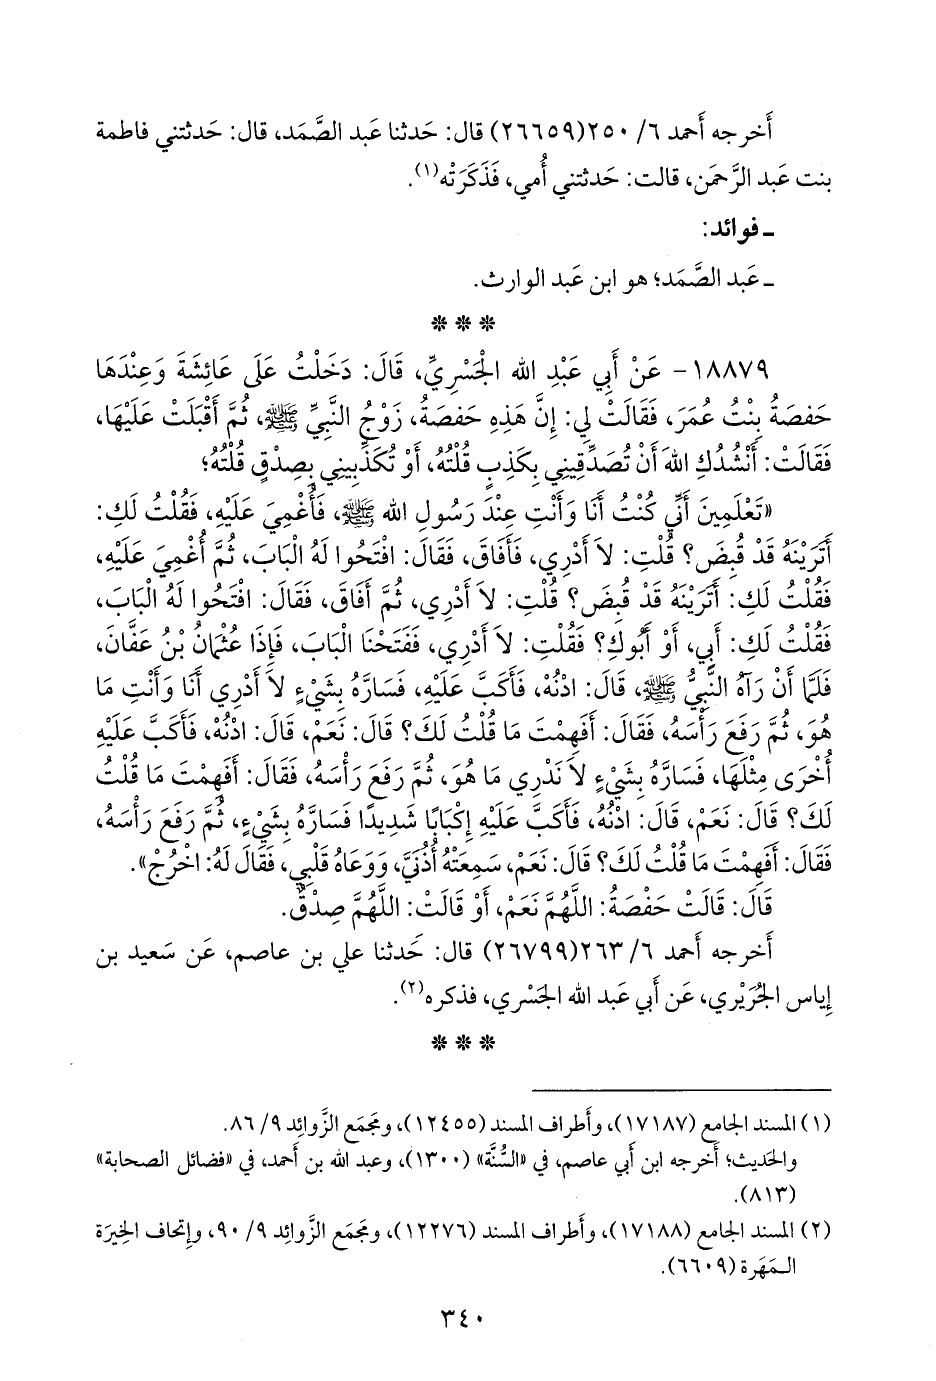 أَخرجه أَحمد ٦/ ٢٥٠(٢٦٦٥٩) قال: حَدثنا عَبد الصَّمَد، قال: حَدثتني فاطمة
بنت عَبد الرَّحمَن، قالت: حَدثتني أُمي، فَذَكَرَتْه(١).
ـ فوائد:
ـ عَبد الصَّمَد؛ هو ابن عَبد الوارث.
* * *
١٨٨٧٩- عَنْ أَبِي عَبْدِ الله الْجَسْرِيِّ، قَالَ: دَخَلْتُ عَلَى عَائِشَةَ وَعِنْدَهَا
حَفصَةُ بِنْتُ عُمَرَ، فَقَالَتْ لِي: إِنَّ هَذِهِ حَفصَةُ، زَوْجُ النَّبِيِّ ﷺ، ثُمَّ أَقْبَلَتْ عَلَيْهَا،
فَقَالَتْ: أَنْشُدُكِ اللهَ أَنْ تُصَدِّقِينِي بِكَذِبٍ قُلْتُهُ، أَوْ تُكَذِّبِينِي بِصِدْقٍ قُلْتُهُ؛
«تَعْلَمِينَ أَنِّي كُنْتُ أَنَا وَأَنْتِ عِنْدَ رَسُولِ الله ﷺ، فَأُغْمِيَ عَلَيْهِ، فَقُلْتُ لَكِ:
أَتَرَيْنَهُ قَدْ قُبِضَ؟ قُلْتِ: لاَ أَدْرِي، فَأَفَاقَ، فَقَالَ: افْتَحُوا لَهُ الْبَابَ، ثُمَّ أُغْمِيَ عَلَيْهِ،
فَقُلْتُ لَكِ: أَتَرَيْنَهُ قَدْ قُبِضَ؟ قُلْتِ: لاَ أَدْرِي، ثُمَّ أَفَاقَ، فَقَالَ: افْتَحُوا لَهُ الْبَابَ،
فَقُلْتُ لَكِ: أَبِي، أَوْ أَبُوكِ؟ فَقُلْتِ: لاَ أَدْرِي، فَفَتَحْنَا الْبَابَ، فَإِذَا عُثْمَانُ بْنُ عَفَّانَ،
فَلَمَّا أَنْ رَآهُ النَّبِيُّ ﷺ، قَالَ: ادْنُهْ، فَأَكَبَّ عَلَيْهِ، فَسَارَّهُ بِشَيْءٍ لاَ أَدْرِي أَنَا وَأَنْتِ مَا
هُوَ، ثُمَّ رَفَعَ رَأْسَهُ، فَقَالَ: أَفَهِمْتَ مَا قُلْتُ لَكَ؟ قَالَ: نَعَمْ، قَالَ: ادْنُهْ، فَأَكَبَّ عَلَيْهِ
أُخْرَى مِثْلَهَا، فَسَارَّهُ بِشَيْءٍ لاَ نَدْرِي مَا هُوَ، ثُمَّ رَفَعَ رَأْسَهُ، فَقَالَ: أَفَهِمْتَ مَا قُلْتُ
لَكَ؟ قَالَ: نَعَمْ، قَالَ: ادْنُهْ، فَأَكَبَّ عَلَيْهِ إِكْبَابًا شَدِيدًا فَسَارَّهُ بِشَيْءٍ، ثُمَّ رَفَعَ رَأْسَهُ،
فَقَالَ: أَفَهِمْتَ مَا قُلْتُ لَكَ؟ قَالَ: نَعَمْ، سَمِعَتْهُ أُذُنَيَّ، وَوَعَاهُ قَلْبِي، فَقَالَ لَهُ: اخْرُجْ».
قَالَ: قَالَتْ حَفْصَةُ: اللَّهُمَّ نَعَمْ، أَوْ قَالَتْ: اللَّهُمَّ صِدْقٌ.
أَخرجه أَحمد ٦/ ٢٦٣(٢٦٧٩٩) قال: حَدثنا علي بن عاصم، عَن سَعيد بن
إِياس الجُرَيْري، عَن أَبي عَبد الله الجَسْري، فذكره(٢).
* * *
(١) المسند الجامع (١٧١٨٧)، وأَطراف المسند (١٢٤٥٥)، ومَجمَع الزَّوائِد ٩/ ٨٦.
والحَديث؛ أَخرجه ابن أَبي عاصم، في «السُّنَّة» (١٣٠٠)، وعبد الله بن أَحمد، في «فضائل الصحابة»
(٨١٣).
(٢) المسند الجامع (١٧١٨٨)، وأَطراف المسند (١٢٢٧٦)، ومَجمَع الزَّوائِد ٩/ ٩٠، وإِتحاف الخِيرَة
المَهَرة (٦٦٠٩).
٣٤٠